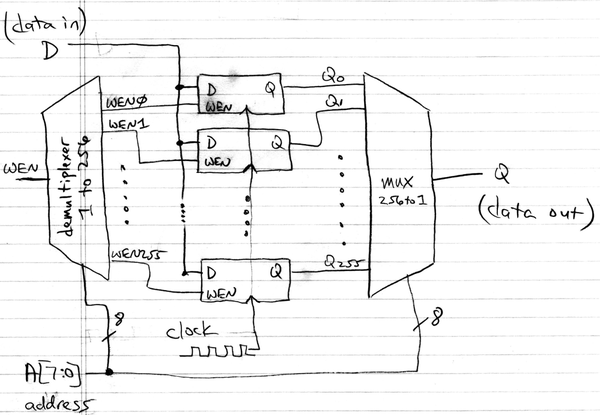 (data in)
D
D Q
WEN
Q0
WEN0
WEN1
D Q
WEN
Q1
WEN
demultiplexer
1 to 256
MUX
256 to 1
Q
(data out)
WEN255
D Q
WEN
Q255
8
clock
8
A[7:0]
address